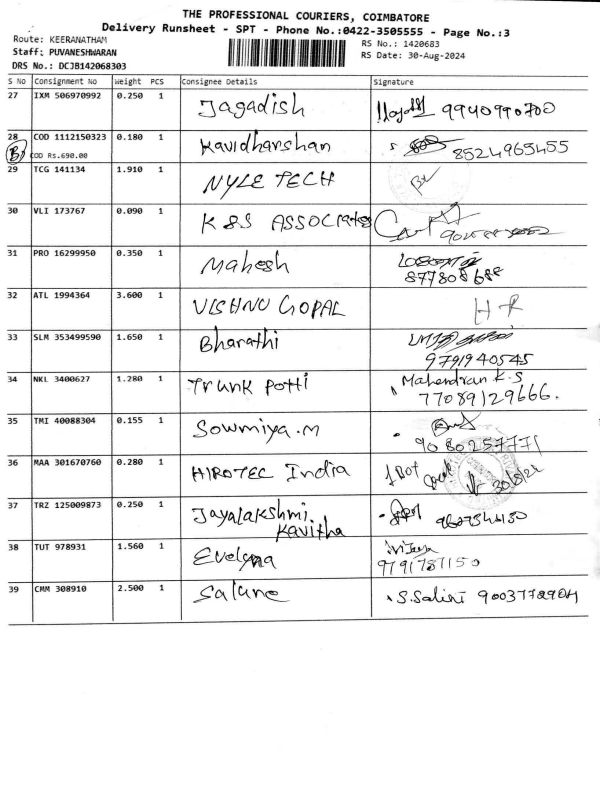 THE PROFESSIONAL COURIERS, COIMBATORE
Delivery Runsheet - SPT - Phone No.:0422-3505555 - Page No.:3
Route: KEERANATHAM
RS No.: 1420683
Staff: PUVANESHWARAN
RS Date: 30-Aug-2024
DRS No.: DCJB142068303
S No Consignment No Weight PCS Consignee Details Signature
27 IXM 506970992 0.250 1 Jagadish 9940990700
28 COD 1112150323 0.180 1 Kavidharshan 8524965455
COD Rs.690.00
29 TCG 141134 1.910 1 NYLE TECH
30 VLI 173767 0.090 1 K&S ASSOCIATES
31 PRO 16299950 0.350 1 Mahesh
877808688
32 ATL 1994364 3.600 1 VISHNU GOPAL
33 SLM 353499590 1.650 1 Bharathi
9791940545
34 NKL 3400627 1.280 1 Trunk Potti Mahendran K.S
77089129666.
35 TMI 40088304 0.155 1 Sowmiya.M
9080257771
36 MAA 301670760 0.280 1 HIROTEC India 30/8/24
37 TRZ 125009873 0.250 1 Jayalakshmi
Kavitha
38 TUT 978931 1.560 1
9791787150
39 CMM 308910 2.500 1 S.Salini